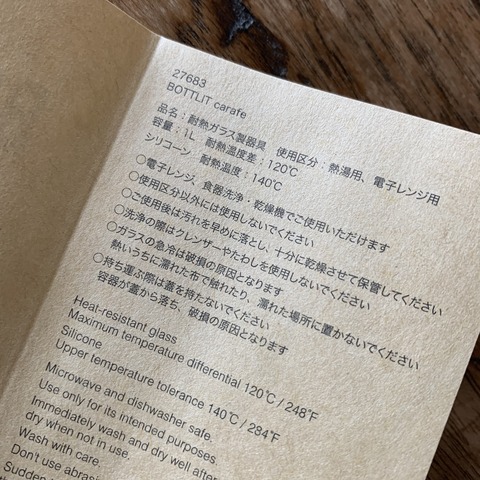 27683
BOTTLIT carafe
品名：耐熱ガラス製器具　使用区分：熱湯用、電子レンジ用
容量：1L　耐熱温度差：120℃
シリコーン　耐熱温度：140℃
○電子レンジ、食器洗浄・乾燥機でご使用いただけます
○使用区分以外には使用しないでください
○ご使用後は汚れを早めに落とし、十分に乾燥させて保管してください
○洗浄の際はクレンザーやたわしを使用しないでください
○ガラスの急冷は破損の原因となります
熱いうちに濡れた布で触れたり、濡れた場所に置かないでください
○持ち運ぶ際は蓋を持たないでください
容器が蓋から落ち、破損の原因となります
Heat-resistant glass
Maximum temperature differential 120℃ / 248℉
Silicone
Upper temperature tolerance 140℃ / 284℉
Microwave and dishwasher safe.
Use only for its intended purposes.
Immediately wash and dry well after
dry when not in use.
Wash with care.
Don't use abrasi
Sudden